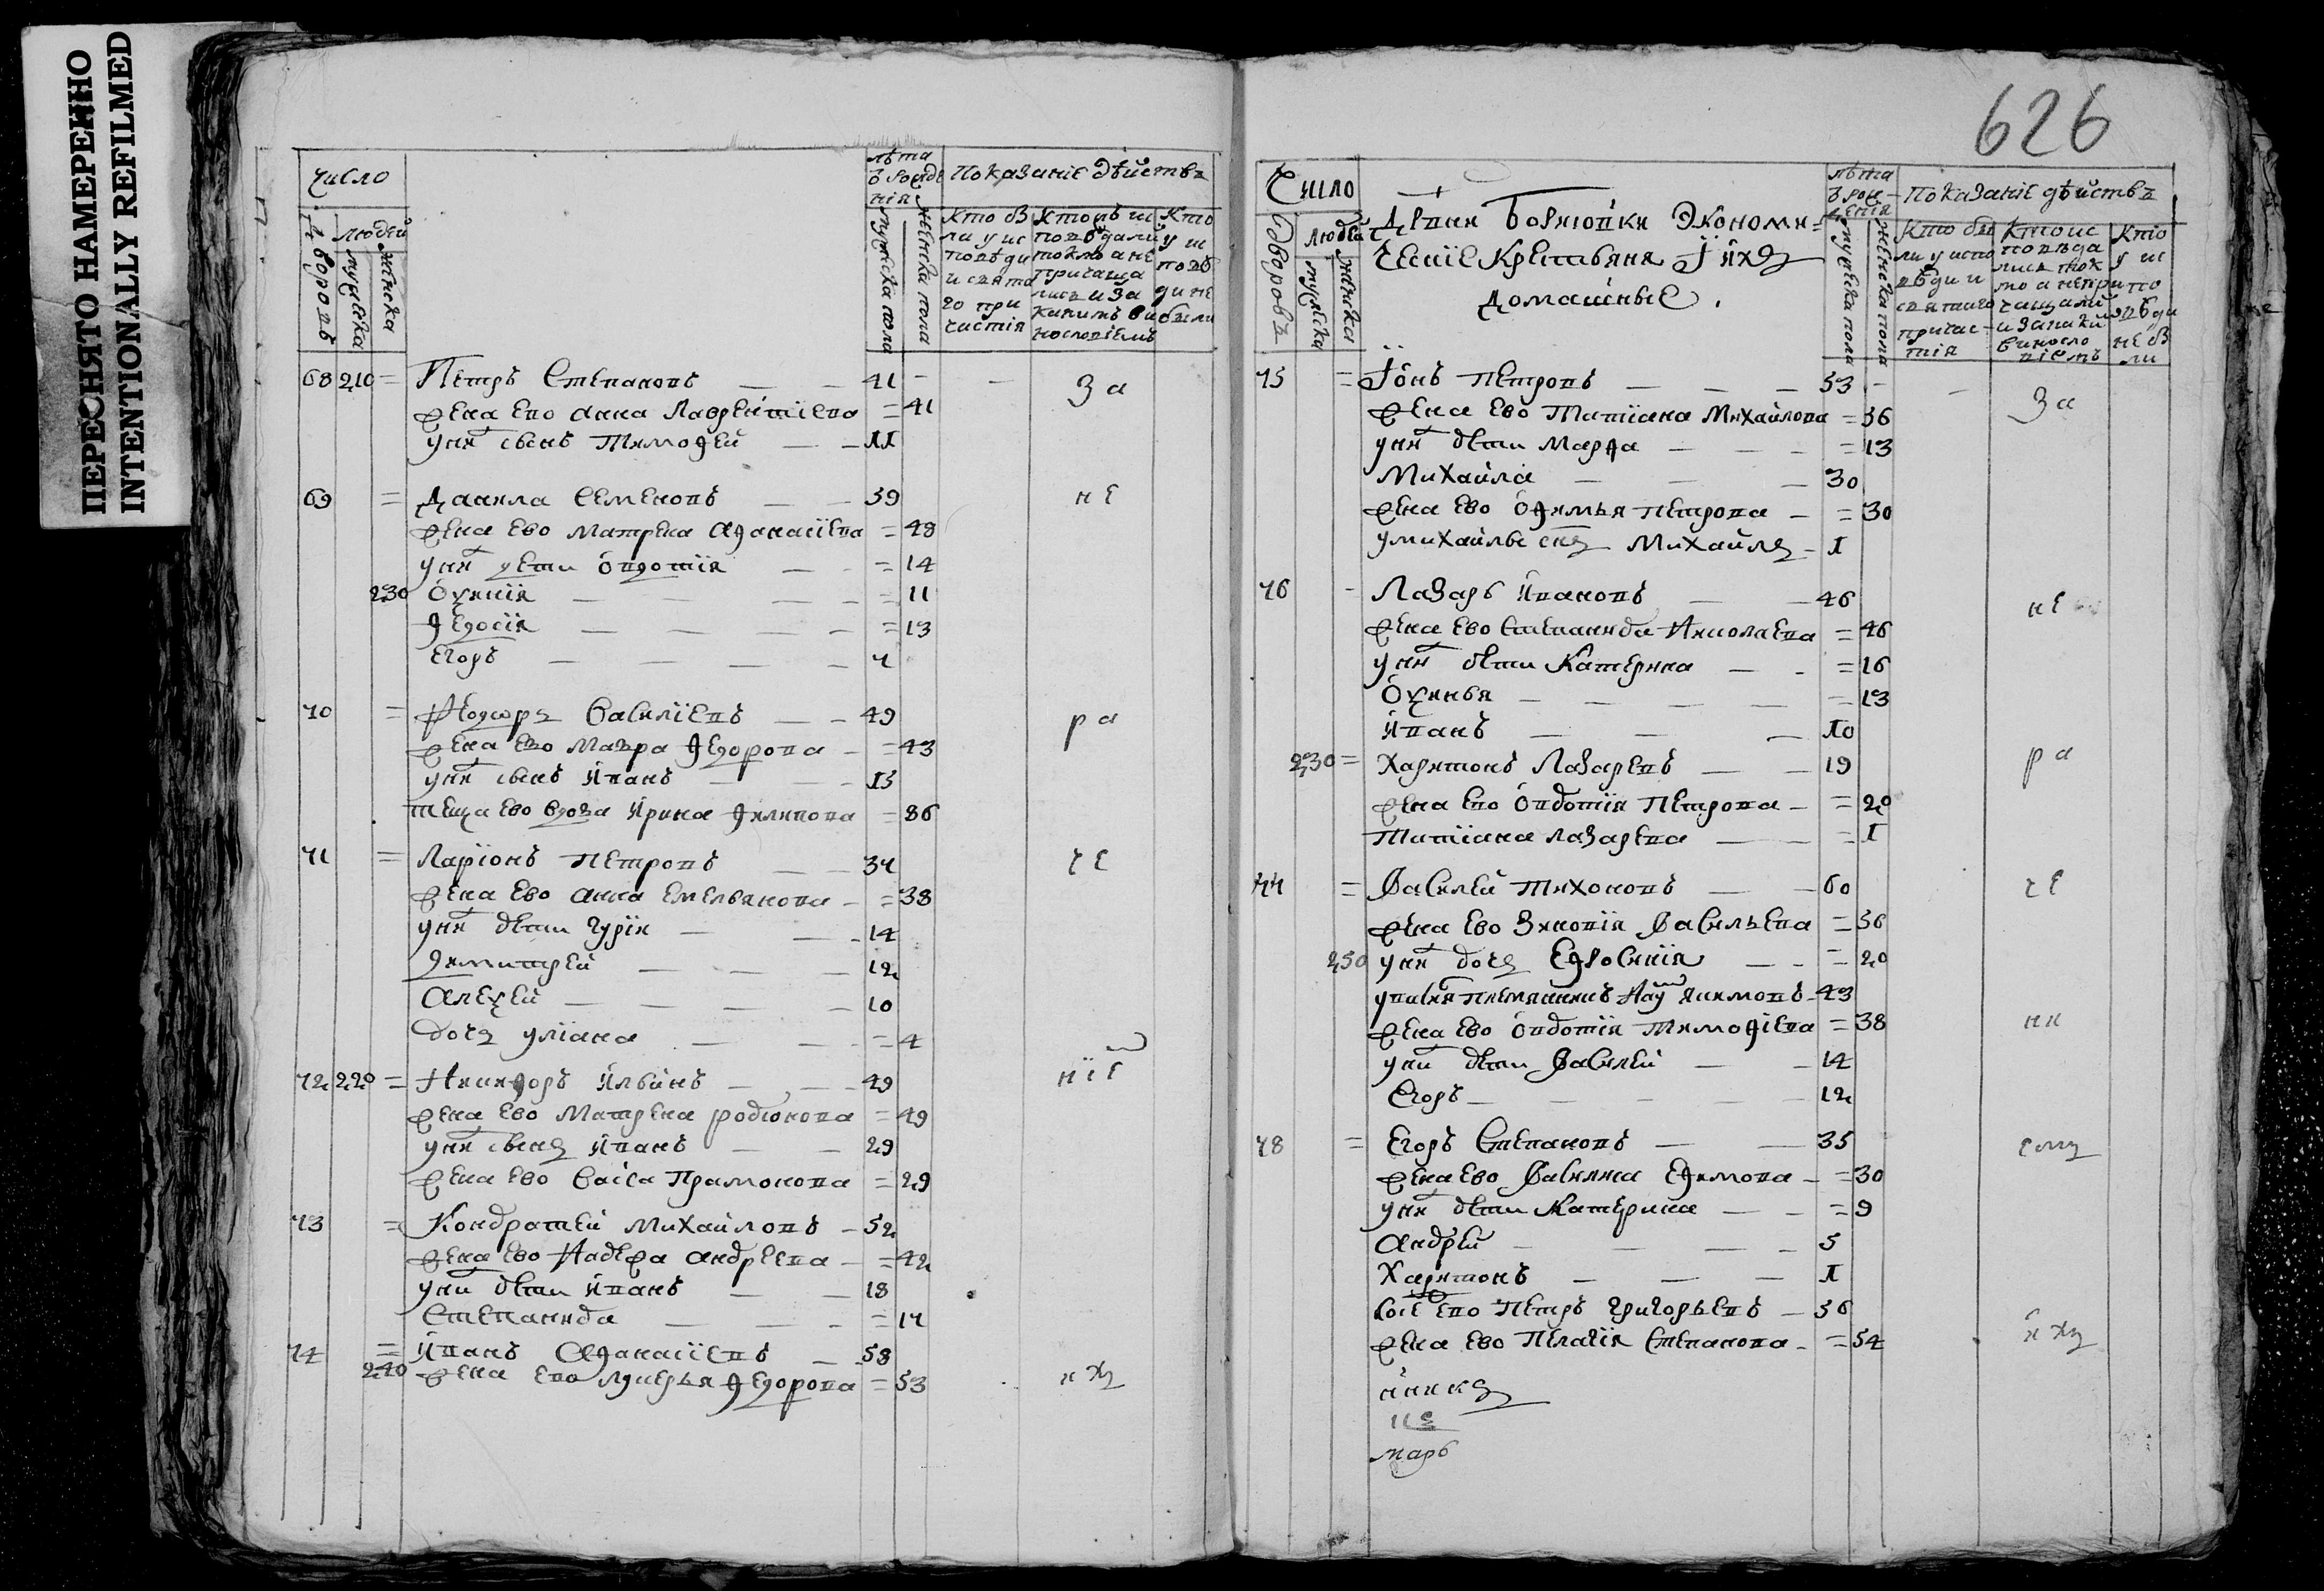 ПЕРЕСНЯТО НАМЕРЕННО
INTENTIONALLY REFILMED
626
число
лѣта ѿ рожде нія
Показаніе дѣйствъ
дворовъ
людей
мужска
женска
мужска пола
женска пола
Кто бы ли у ис повѣди и свята го при частія
Кто исповѣдали токмо а не причаща лись и за какимъ винословіемъ
Кто у ис повѣди не были
68 210 = Петръ Степановъ — — 41 За
жена ево Анна Лаврентїева = 41
у ни сынъ Тимофей — — 11
69 = Данила Семеновъ — 39 не
жена ево Матрена Афанасїева = 48
у ни дети Овдотїя — = 14
230 Оѯинїя — — = 11
Федосїя — — = 13
Егоръ — — — 7
70 = Федоръ Василїевъ — 49 ра
жена ево Мавра Федорова — = 43
у ни сынъ Иванъ — — 13
теща ево вдова Ирина Филипова = 86
71 = Ларїонъ Петровъ — 37 че
жена ево Анна Емельянова — = 38
у ни дети Гурїя — — 14
Димитрей — — 12
Алеѯей — — 10
дочь Улїана — = 4
72 220 = Никифоръ Ильинъ — 49 нїе
жена ево Матрена Родїонова = 49
у ни сынъ Иванъ — — 29
жена ево Васса Прамонова = 29
73 = Кондратей Михайловъ — 52
жена ево Надежа Андреева — = 42
у ни дети Иванъ — 18
Степанида — — = 17
74 = Иванъ Афанасїевъ — 58
240 жена ево Лукерья Федорова = 53 ихъ
Число
лѣта ѿ рож денія
Показаніе дѣйствъ
Дрвни Борновки Экономи=
ческїе Крестьяня и ихъ
домашные.
дворовъ
людей
мужска
женска
мужска пола
женска пола
Кто бы ли у испо вѣди и святаго причас тія
Кто ис повѣда лись ток мо а непри чащали и за каким винословіемъ
Кто у ис повѣди не бы ли
75 = Їонъ Петровъ — — 53 За
жена ево Татїана Михайлова = 36
у ни дети Марфа — — = 13
Михайла — — 30
жена ево Офимья Петрова — = 30
у михайлы снъ Михайлъ — 1
76 - Лазарь Ивановъ — 46 не
жена ево Степанида Николаева = 46
у ни дети Катерина — = 16
Оѯинья — — = 13
Иванъ — — 10
230 = Харитонъ Лазаревъ — 19 ра
жена ево Овдотїя Петрова — = 20
Татїана Лазарева — = 1
77 = Василей Тихоновъ — 60 че
жена ево Зиновїя Васильева = 56
250 у ни дочь Ефросинїя — = 20
у васия племянникъ Нау Якимовъ — 43
жена ево Овдотїя Тимофїева = 38 ни
у ни дети Василей — 14
Егоръ — — 12
78 = Егоръ Степановъ — 35 емъ
жена ево Васияна Ефимова — = 30
у ни дети Катерина — = 9
Андрей — — 5
Харитонъ — — 1
ево Петръ Григорьевъ — 56
жена ево Пелагїя Степанова — = 54 ихъ
марь